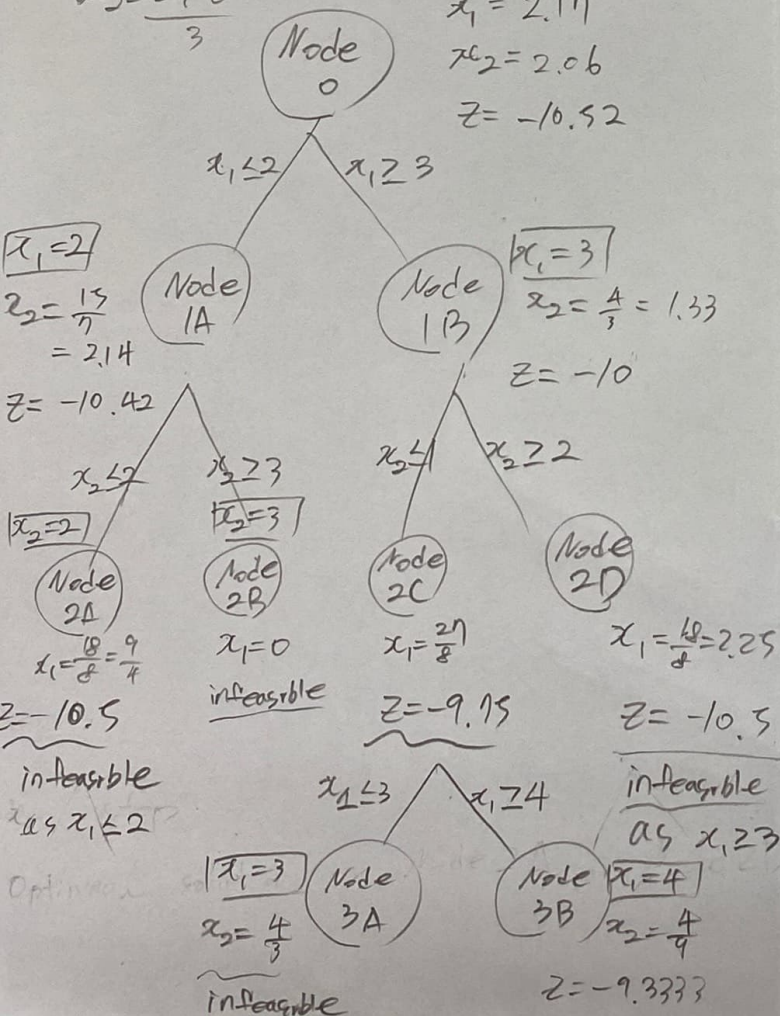 3
x₁ = 2.17
Node
0
x₂ = 2.06
z = -10.52
x₁ ≤ 2
x₁ ≥ 3
x₁ = 2
Node
1A
x₂ = 15/7
= 2.14
z = -10.42
Node
1B
x₁ = 3
x₂ = 4/3 = 1.33
z = -10
x₂ ≤ 2
x₂ ≥ 3
x₂ ≤ 1
x₂ ≥ 2
x₂ = 2
x₂ = 3
Node
2A
Node
2B
Node
2C
Node
2D
x₁ = 18/8 = 9/4
z = -10.5
infeasible
as x₁ ≤ 2
x₁ = 0
infeasible
x₁ = 27/8
z = -9.75
x₁ = 18/8 = 2.25
z = -10.5
infeasible
as x₁ ≥ 3
x₁ ≤ 3
x₁ ≥ 4
x₁ = 3
Node
3A
x₂ = 4/3
infeasible
Node
3B
x₁ = 4
x₂ = 4/9
z = -9.3333